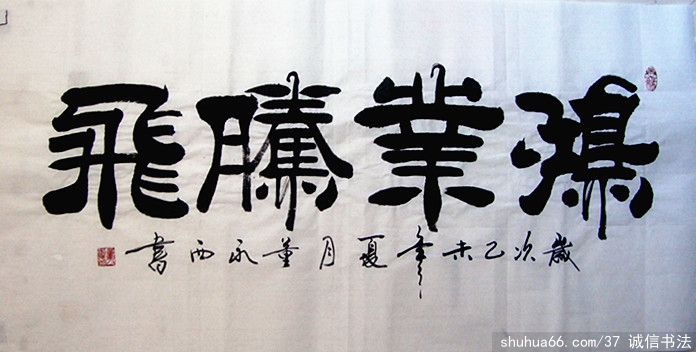 鴻業騰飛
歲次乙未年夏月董永西書
shuhua66.com/37 诚信书法